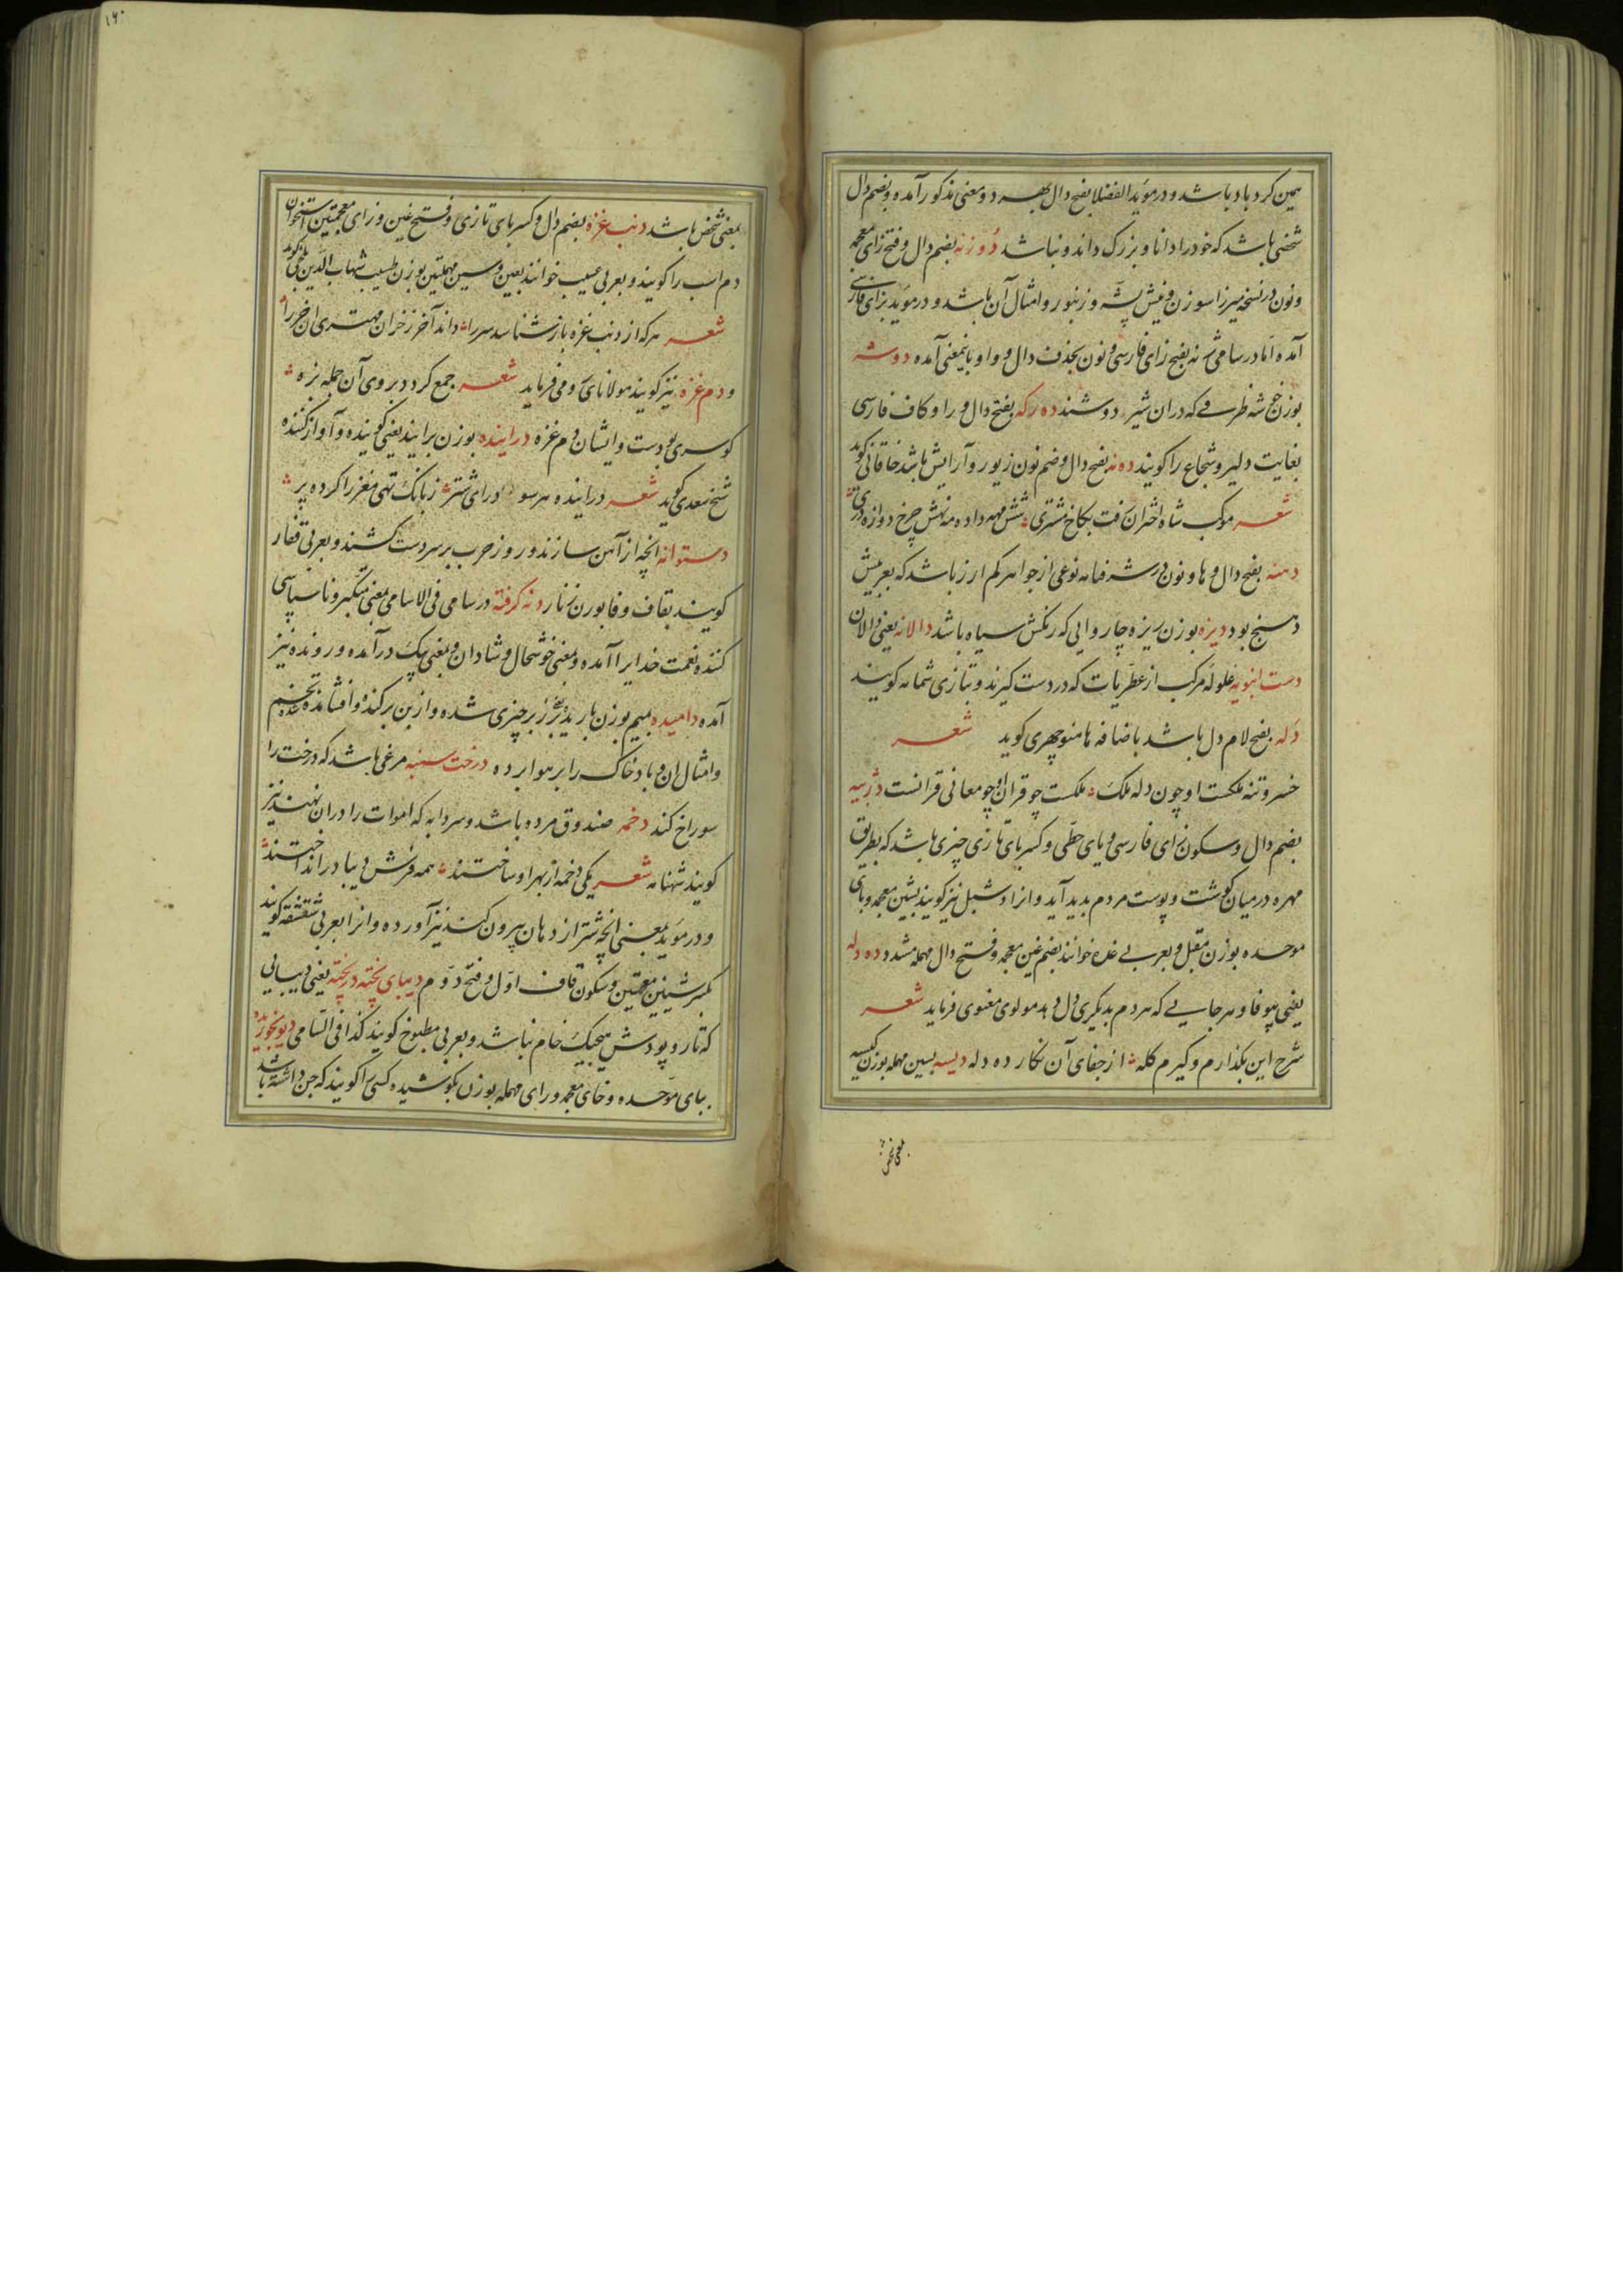 همین کرد باد باشد و در موید الفضلا بفتح دال بهر دو معنی مذکور آمده و بضم دال
شخصی باشد که خود را دانا و بزرک داند و نباشد دُوزنه بضم دال و فتح زای معجمه
و نون در نسخه میرزا سوزن و نیش پشه و زنبور و امثال آن باشد و در موید بزای فارسی
آمده اما در سامی ژنه بفتح زای فارسی و نون بحذف دال و واو باینمعنی آمده دوشه
بوزن خوشه ظرفی که در ان شیر دوشند ده رکه بفتح دال و را و کاف فارسی
بغایت دلیر و شجاع را کویند ده نه بفتح دال و ضم نون زیور و آرایش باشد خاقانی کوید
شعر موکب شاه اختران رفت بکاخ مشتری شش مهه داده مه نهش چرخ دوازه دری
دهنه بفتح دال و ها و نون در شرفنامه نوعی از جواهر کم ارز باشد که بعربیش
دهنج بود دیزه بوزن ریزه چاروایی که رنکش سیاه باشد دالانه یعنی دالان
دست انبویه غلوله مرکب از عطریات که در دست کیرند و بتازی شمامه کویند
دله بفتح لام دل باشد باضافه ها منوچهری کوید شعر
خسرو تنه ملکست او چون دله ملک ملکست چو قران او چو معانی قرانست دژبیه
بضم دال و سکون زای فارسی و یای حطی و کسر بای تازی چیزی باشد که بطریق
مهره در میان کوشت و پوست مردم پدید آید و انرا وشبل نیز کویند بشین معجمه و بای
موحده بوزن مقبل و بعربی غده خوانند بضم غین معجمه و فتح دال مهمله مشدد ده دله
یعنی بیوفا و هرجایی که هر دم بدیکری دل دهد مولوی معنوی فرماید شعر
شرح این بکذارم و کیرم کله از جفای آن نکار ده دله دیسه بسین مهمله بوزن کیسه
بمعنی شخص
۱۶۰
بمعنی شخص باشد دنب غزه بضم دال و کسر بای تازی و فتح غین و زای معجمتین استخوان
دم اسب را کویند و بعربی عسیب خوانند بعین و سین مهملتین بوزن طبیب شهاب الدین کوید
شعر هر که از دنب غزه باز شناسد سر را داند آخر ز خران مهتری ان خر را
و دم غزه نیز کویند مولانای رومی فرماید شعر جمع کردد بر وی آن جمله بزه
کو سری بودست و ایشان دم غزه درآینده بوزن برآیند یعنی کوینده و آواز کننده
شیخ سعدی کوید شعر دراینده هر سو درای شتر ز بانک تهی مغز را کرده پر
دستوانه انچه از آهن سازند و روز حرب بر سر دست کشند و بعربی قفاز
کویند بقاف و فا بوزن زنار دنه کرفته در سامی فی الاسامی بمعنی متکبر و ناسپاسی
کننده نعمت خدایرا آمده و بمعنی خوشحال و شادان و بمعنی پیک درآمده و رونده نیز
آمده دامیده بمیم بوزن باریده بر زبر چیزی شده و از بن برکنده و افشانده غله تخم
و امثال ان و باد خاک را بر هوا برده درخت سنبه مرغی باشد که درخت را
سوراخ کند دخمه صندوق مرده باشد و سردابه که اموات را دران نهند نیز
کویند شهنامه شعر یکی دخمه از بهر او ساختند همه فرش دیبا در انداختند
و در موید بمعنی انچه شتر از دهان بیرون کند نیز آورده و انرا بعربی شقشقه کویند
بکسر شینین معجمتین و سکون قاف اول و فتح دوم دیبای پخته در پخته یعنی دیبایی
که تار و پودش هیچیک خام نباشد و بعربی مطبوخ کویند کذا فی السامی دیوبخوریده
ببای موحده و خای معجمه و رای مهمله بوزن بکوشیده کسی را کویند که جن داشته باشد